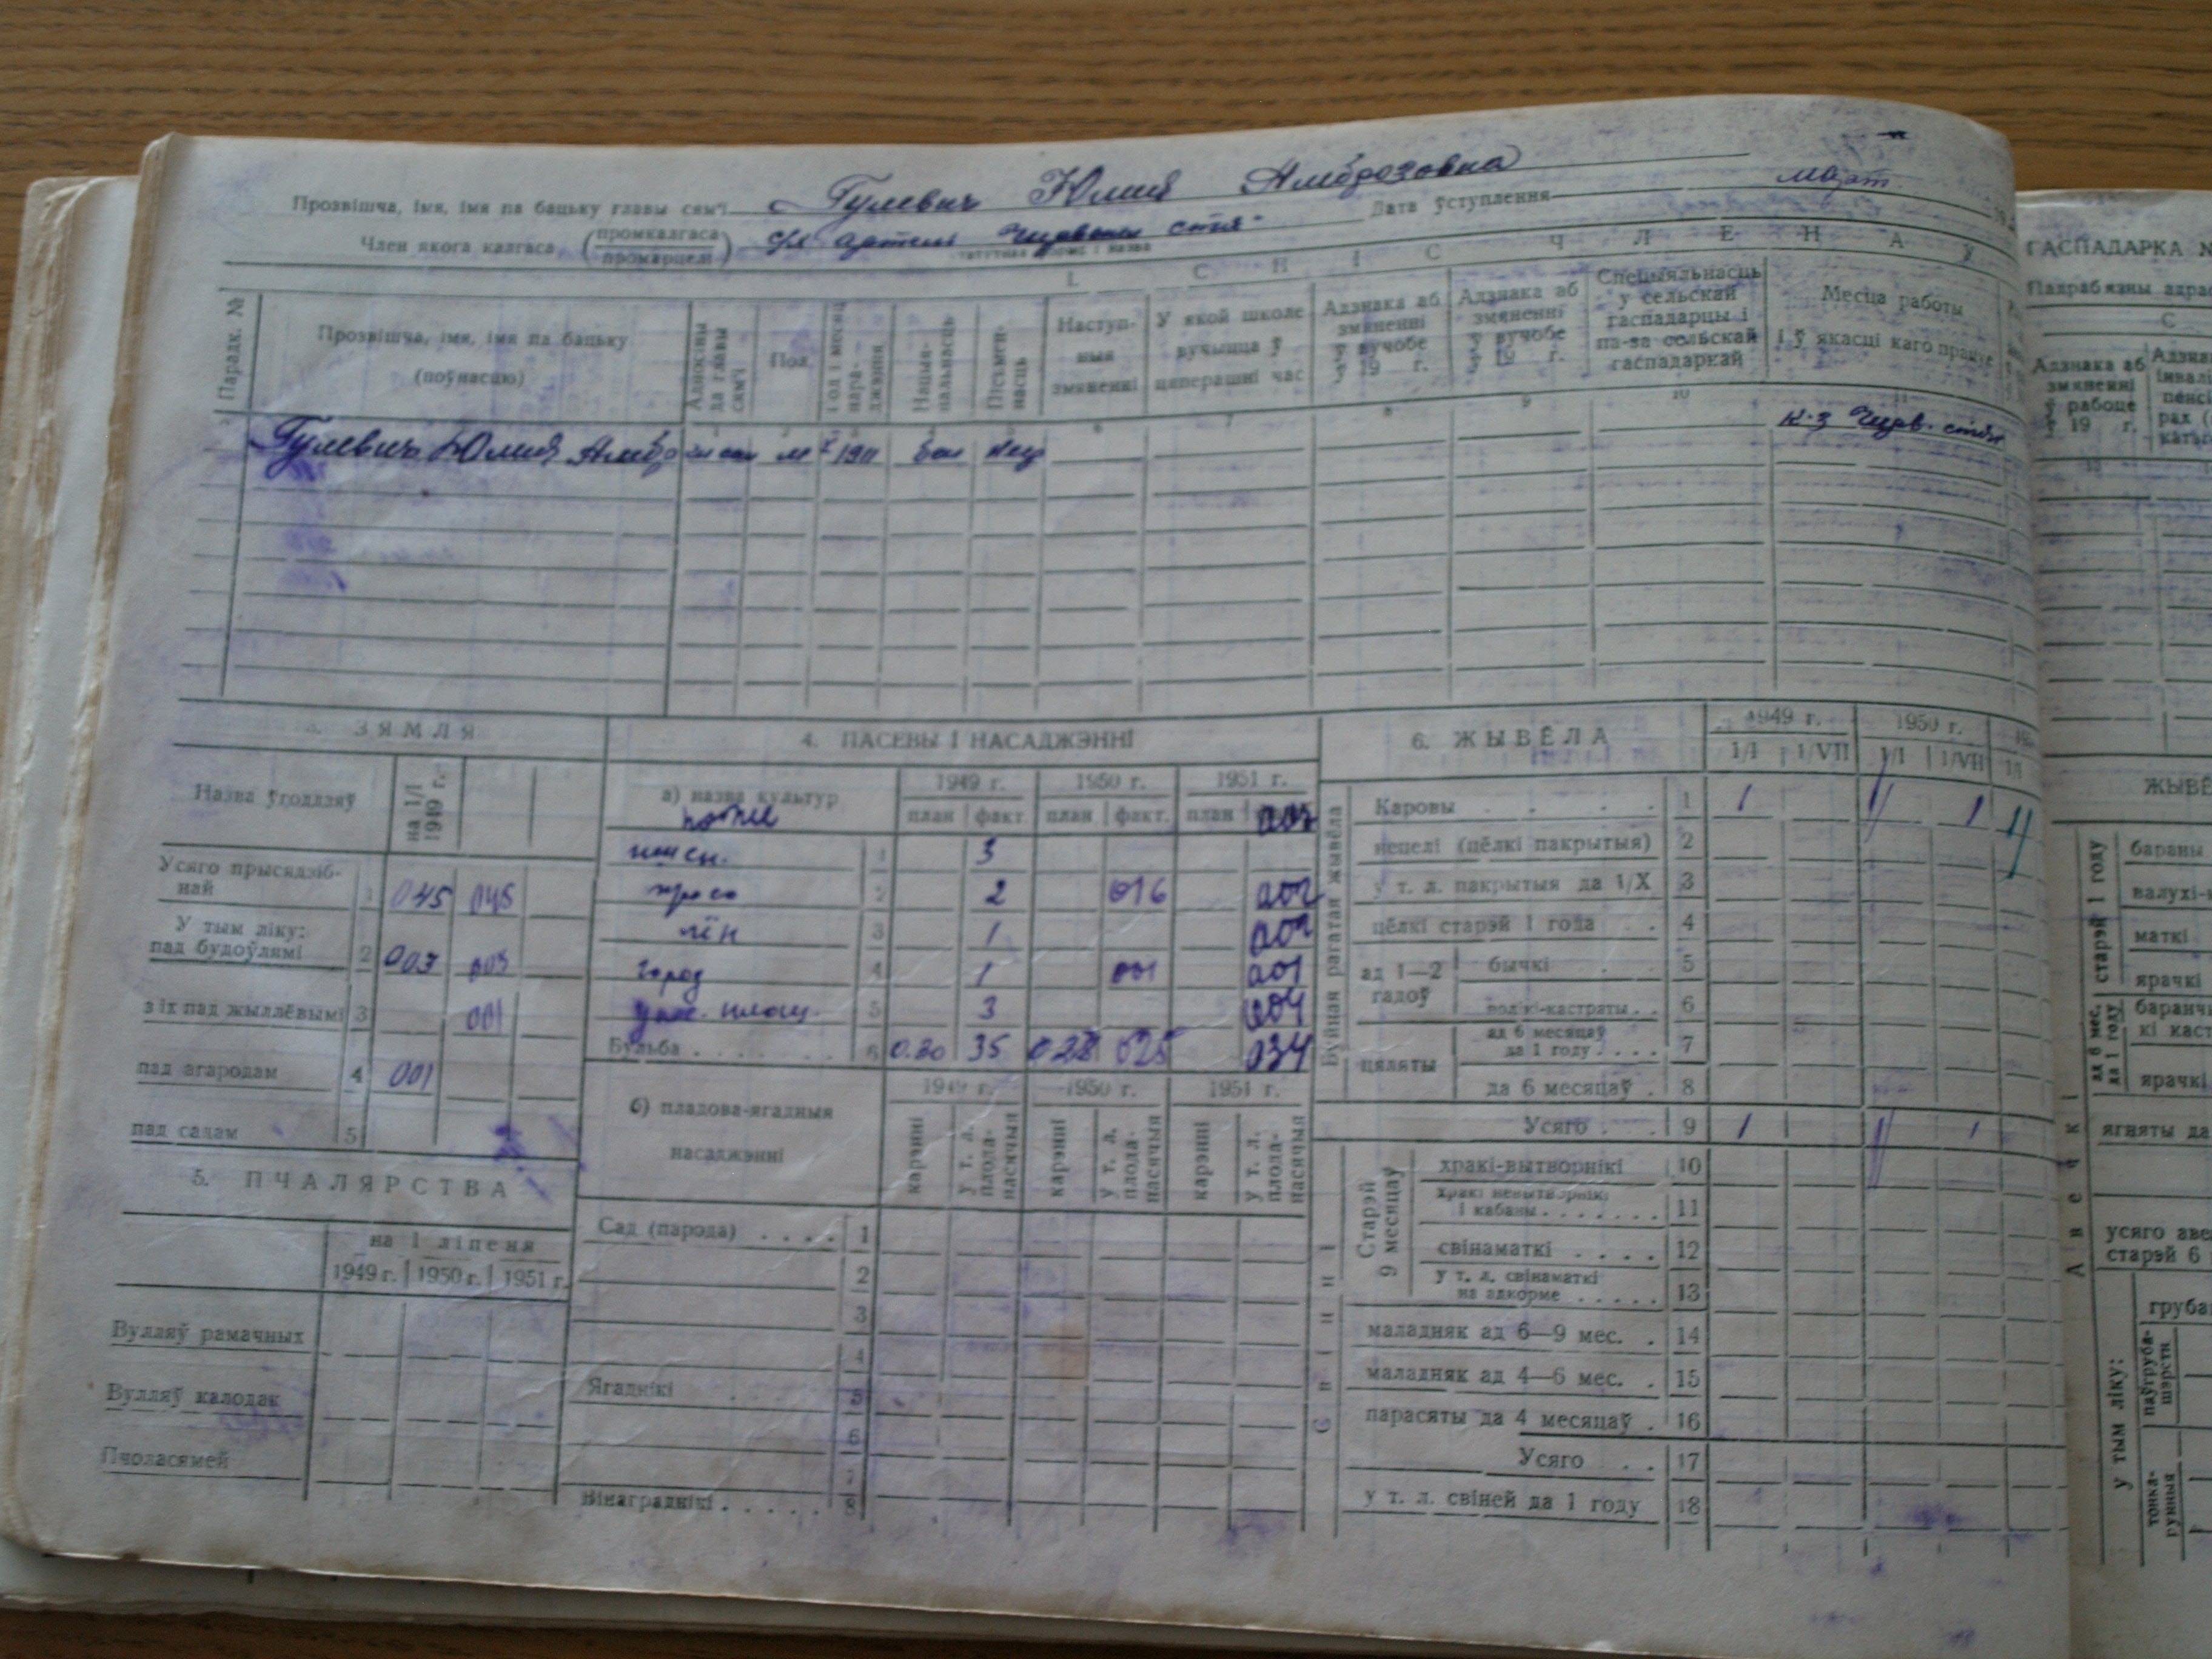 Прозвішча, імя, імя па бацьку главы сям'і Гулевич Юлия Амброзовна
Член якога калгаса (промкалгаса промарцелі) с/х артели Дата ўступлення март
I. СПІС ЧЛЕНАЎ
Парадк. № Прозвішча, імя, імя па бацьку (поўнасцю) Адносіны да главы сям'і Пол Год і месяц нараджэння Нацыянальнасць Пісьменнасць Наступныя змяненні У якой школе вучыцца ў цяперашні час Адзнака аб змяненні ў вучобе ў 19 г. Адзнака аб змяненні ў вучобе ў 19 г. Спецыяльнасць у сельскай гаспадарцы і па-за сельскай гаспадаркай Месца работы і ў якасці каго працуе
6 7 8 9 10 11
Гулевич Юлия Амбр 1911 бел к-з Черв.
3. ЗЯМЛЯ
Назва ўгоддзяў на 1/I 1949 г.
Усяго прысядзібнай 1 045 045
У тым ліку: пад будоўлямі 2 003 003
з іх пад жыллёвымі 3 001
пад агародам 4 001
пад садам 5
5. ПЧАЛЯРСТВА
на 1 ліпеня
1949 г. 1950 г. 1951 г.
Вулляў рамачных
Вулляў калодак
Пчоласямей
4. ПАСЕВЫ І НАСАДЖЭННІ
а) назва культур 1949 г. 1950 г. 1951 г.
план факт. план факт. план
пшен. 1 3
просо 2 2 016 002
лён 3 1 002
город 4 1 001 001
площ. 5 3 004
Бульба 6 0.30 35 028 025 034
б) пладова-ягадныя насаджэнні 1949 г. 1950 г. 1951 г.
карэнні у т. л. плоданасячыя карэнні у т. л. плоданасячыя карэнні у т. л. плоданасячыя
Сад (парода) . . . . 1
2
3
4
Ягаднікі 5
6
7
Вінаграднікі . . . . . 8
6. ЖЫВЁЛА 1949 г. 1950 г.
1/I 1/VII 1/I 1/VII 1/I
Буйная рагатая жывёла
Каровы . . . . 1 1 1 1
нецелі (цёлкі пакрытыя) 2
у т. л. пакрытыя да 1/X 3
цёлкі старэй 1 года . . 4
ад 1—2 гадоў бычкі 5
валікі-кастраты . . 6
цяляты ад 6 месяцаў да 1 году . . . . 7
да 6 месяцаў . 8
Усяго . . . 9 1 1 1
Свінні
Старэй 9 месяцаў хракі-вытворнікі 10
хракі невытворнікі і кабаны . . . . . . . 11
свінаматкі . . . . 12
у т. л. свінаматкі на адкорме . . . . . 13
маладняк ад 6—9 мес. . 14
маладняк ад 4—6 мес. . 15
парасяты да 4 месяцаў . 16
Усяго . . 17
у т. л. свіней да 1 году 18
ГАСПАДАРКА №
Падрабязны адрас
С
Адзнака аб змяненні ў рабоце ў 19 г.
ЖЫВЁ
Авечкі
старэй 1 году
бараны
валухі-
маткі
ярачкі
ад 6 мес. да 1 году
баранчы
кі каст
ярачкі
ягняты да
усяго аве
старэй 6
у тым ліку:
груба
паўгруба-шэрсти
тонка-рунныя